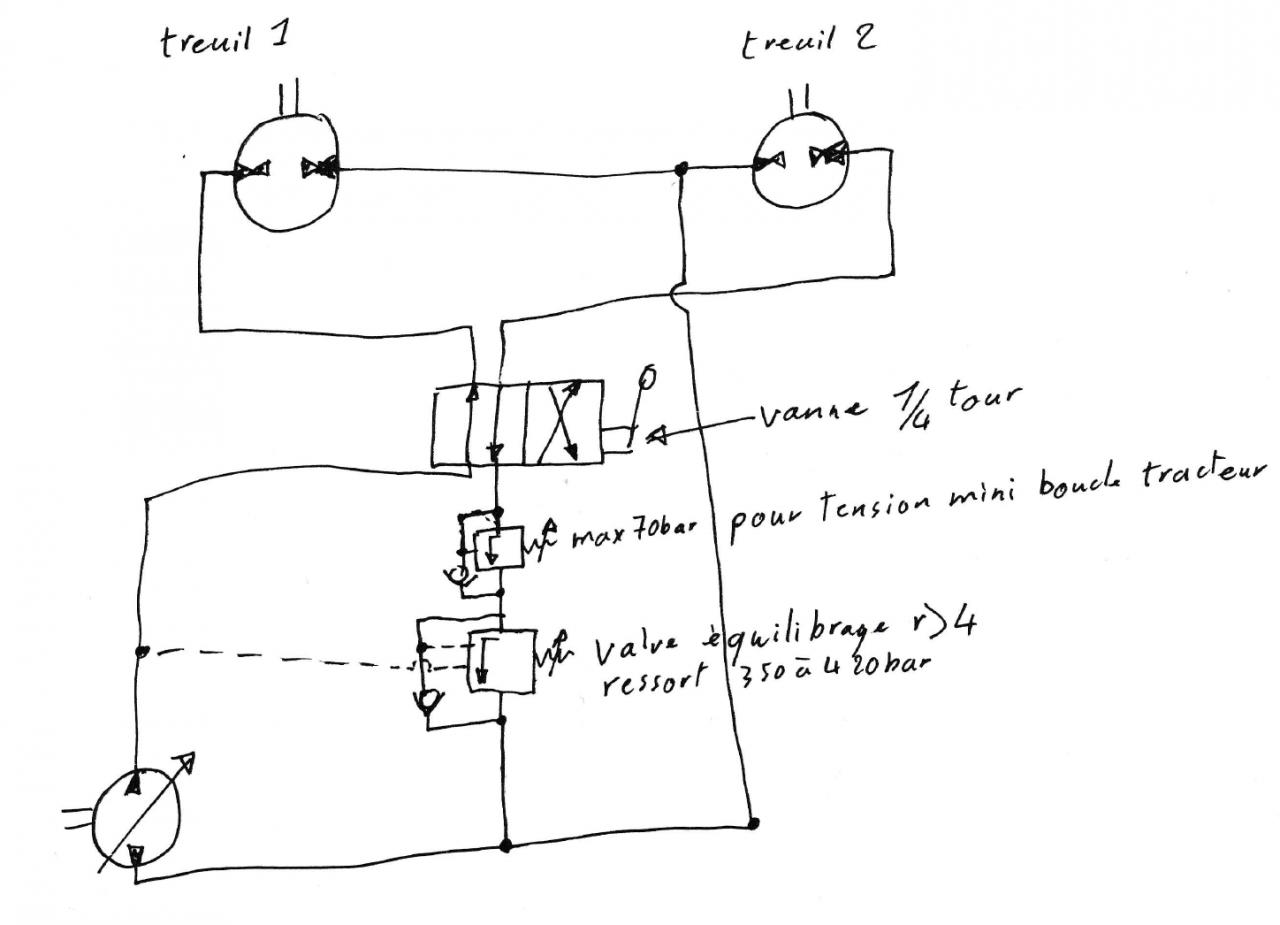 treuil 1
treuil 2
vanne 1/4 tour
max 70bar pour tension mini boucle tracteur
valve équilibrage r>4
ressort 350 à 420bar